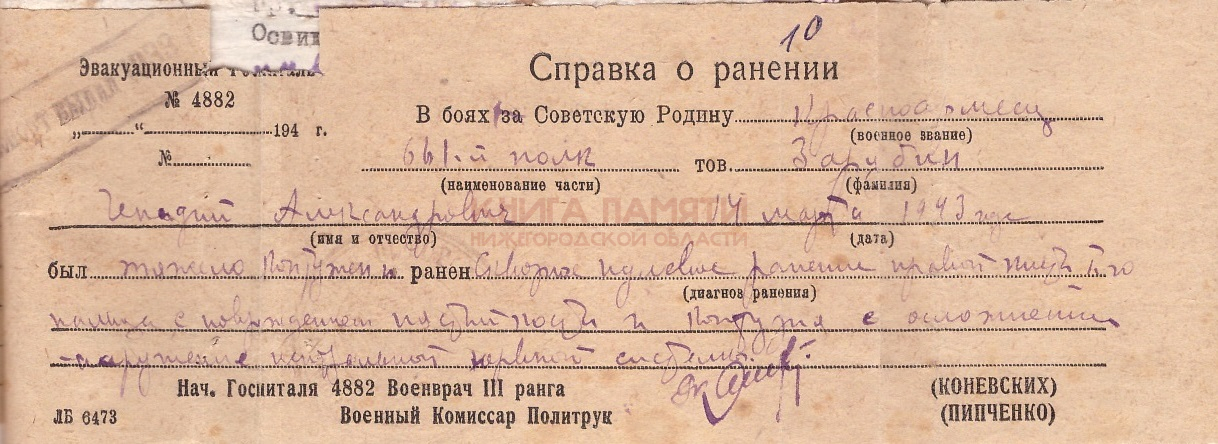 Освин
10
Эвакуационный Госпиталь
Справка о ранении
№ 4882
В боях за Советскую Родину Красноармеец
(военное звание)
„ “ 194 г.
№
661-й полк тов. Зарубин
(наименование части) (фамилия)
Генадий Александрович 14 марта 1943 года
(имя и отчество) (дата)
КНИГА ПАМЯТИ
НИЖЕГОРОДСКОЙ ОБЛАСТИ
был тяжело контужен и ранен пулевое ранение правой кисти
(диагноз ранения)
пальца с повреждением кости и контузия с осложнением
нервной системы
Нач. Госпиталя 4882 Военврач III ранга (КОНЕВСКИХ)
ЛБ 6473 Военный Комиссар Политрук (ПИПЧЕНКО)